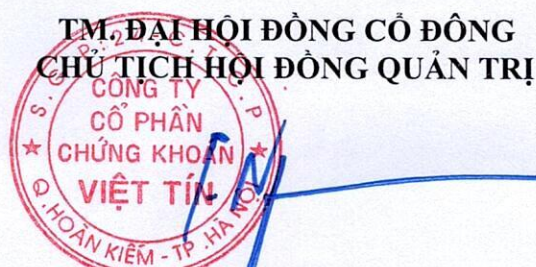 TM. ĐẠI HỘI ĐỒNG CỔ ĐÔNG
CHỦ TỊCH HỘI ĐỒNG QUẢN TRỊ
CÔNG TY
CỔ PHẦN
CHỨNG KHOÁN
VIỆT TÍN
Q. HOÀN KIẾM - TP. HÀ NỘI